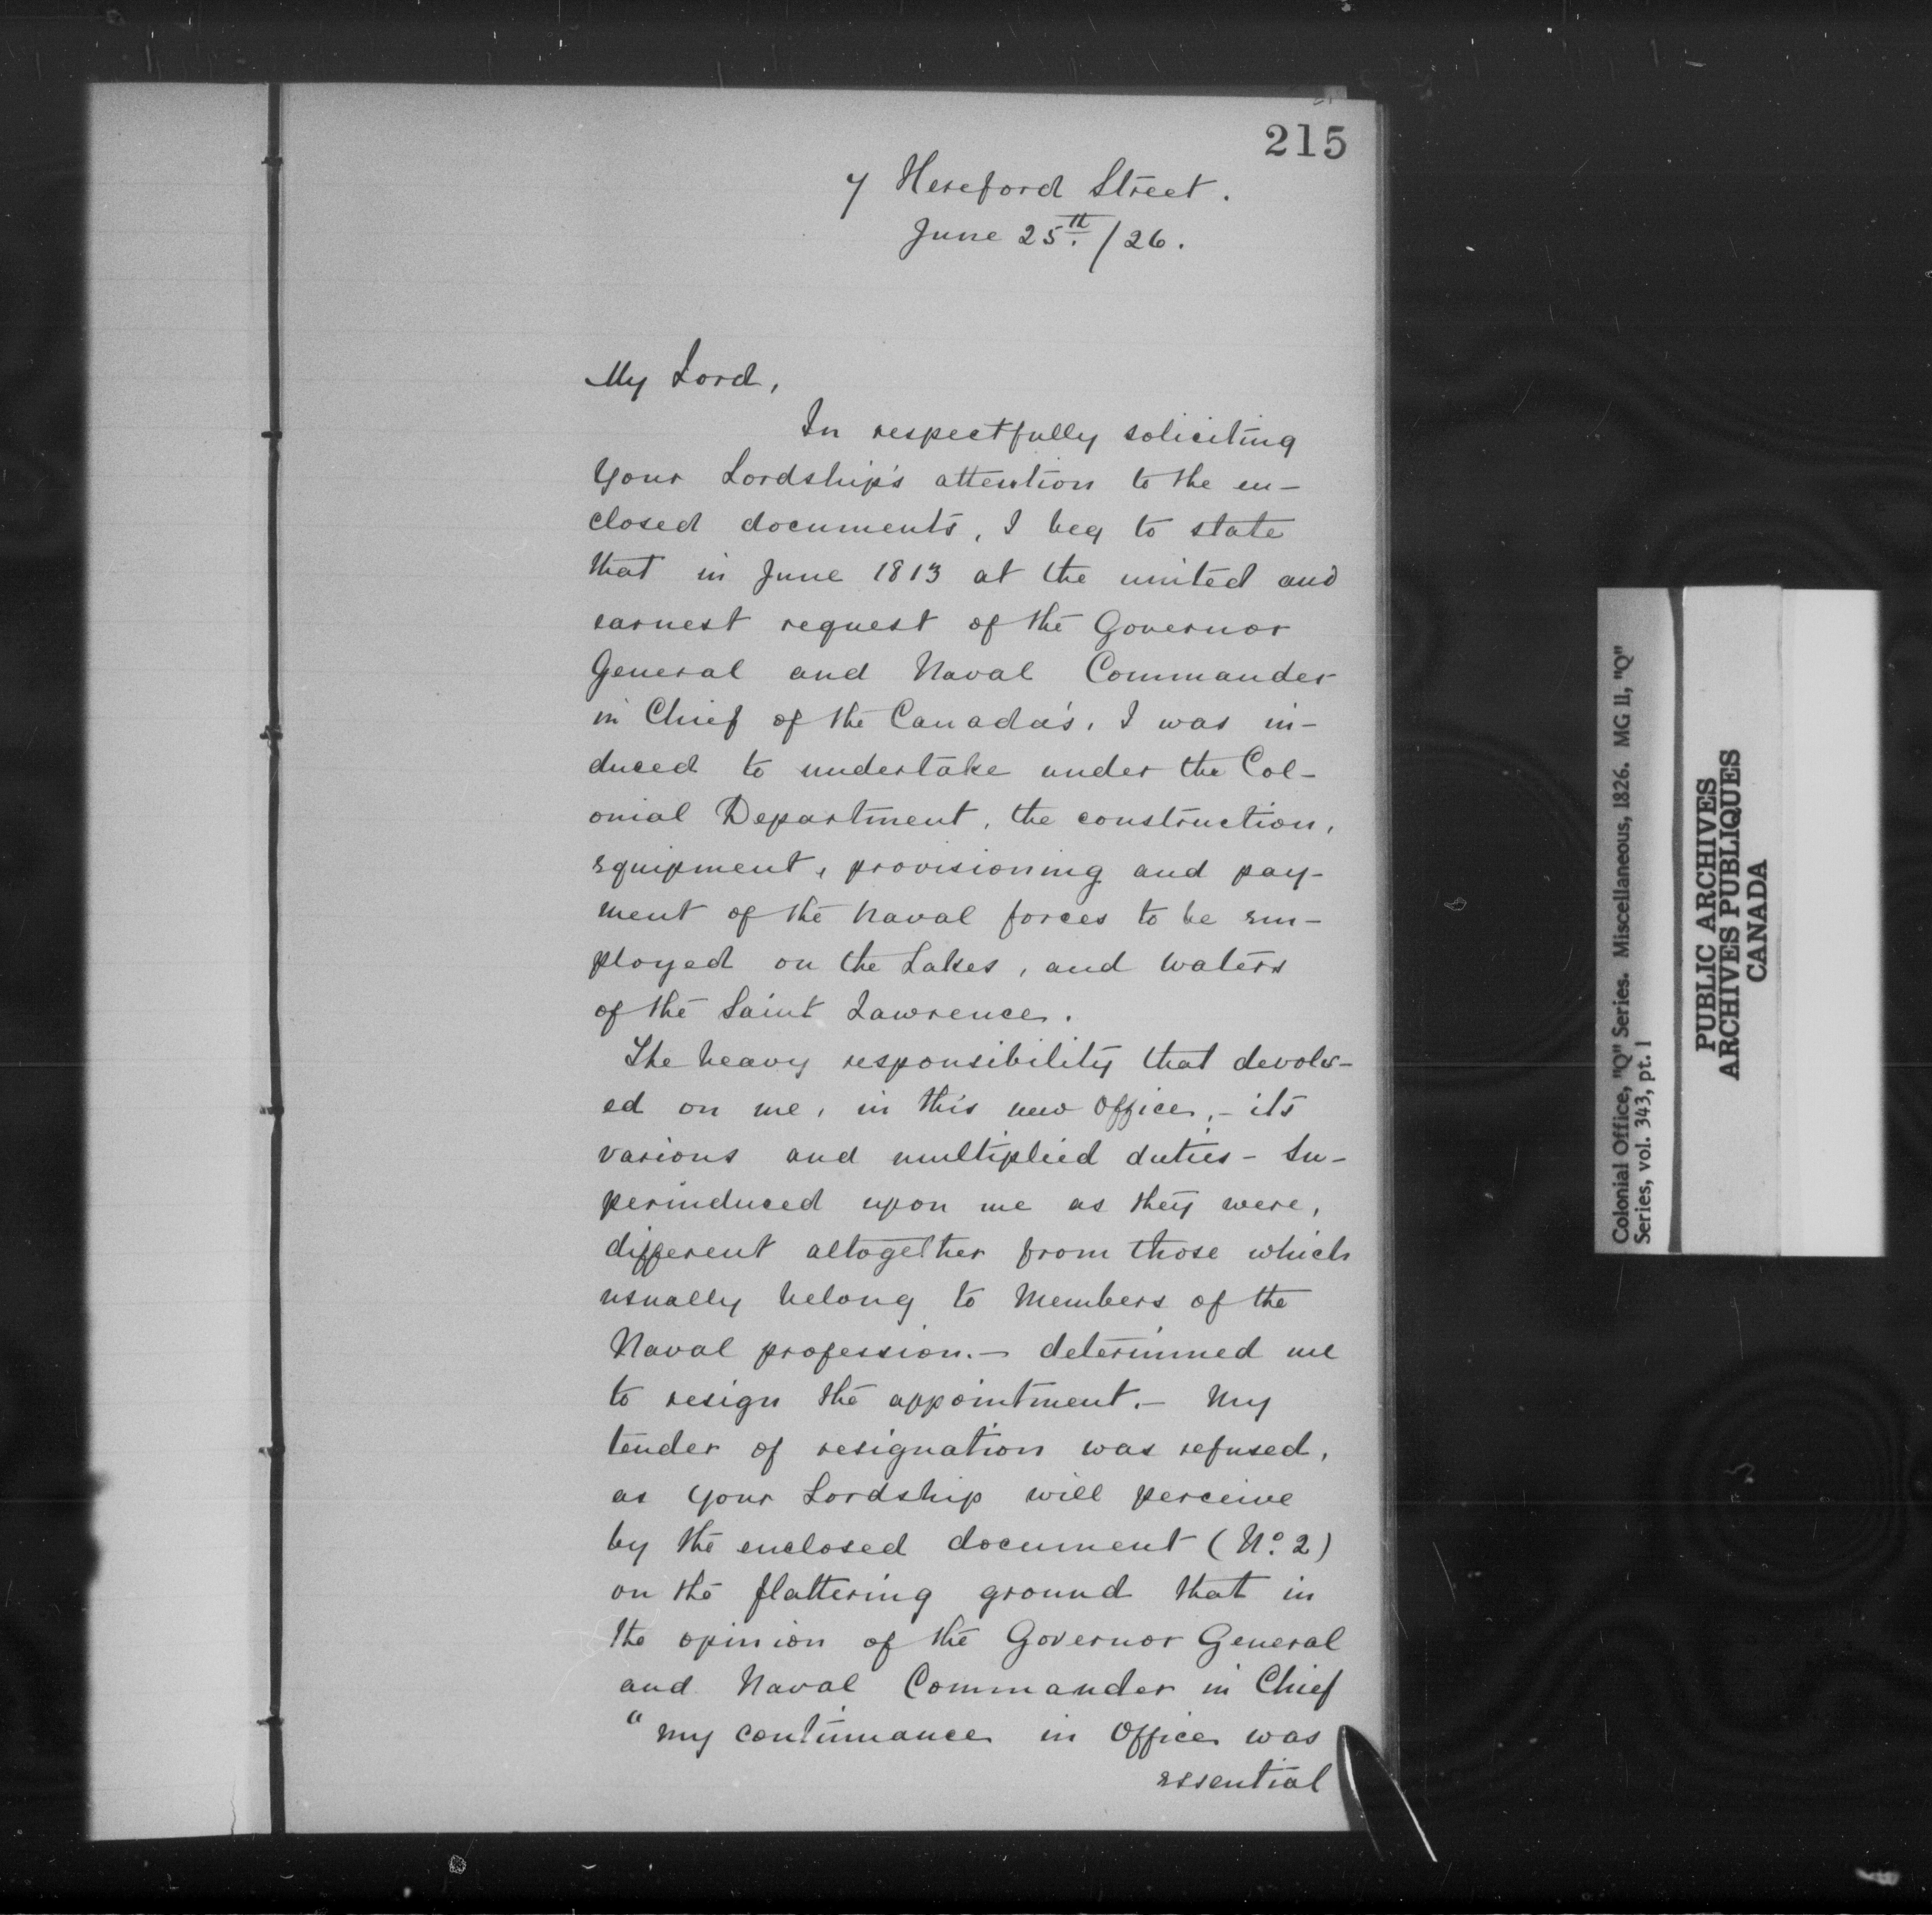 215
7 Hereford Street.
June 25th./26.
My Lord,
In respectfully soliciting
your Lordship's attention to the en-
closed documents, I beg to state
that in June 1813 at the united and
earnest request of the Governor
General and Naval Commander
in Chief of the Canada's, I was in-
duced to undertake under the Col-
onial Department, the construction,
equipment, provisioning and pay-
ment of the Naval forces to be em-
ployed on the Lakes, and waters
of the Saint Lawrence.
The heavy responsibility that devolv-
ed on me, in this new office,- its
various and multiplied duties - Su-
perinduced upon me as they were,
different altogether from those which
usually belong to Members of the
Naval profession.- determined me
to resign the appointment.- My
tender of resignation was refused,
as your Lordship will perceive
by the enclosed document (No. 2)
on the flattering ground that in
the opinion of the Governor General
and Naval Commander in Chief
"my continuance in office was
essential
Colonial Office, "Q" Series. Miscellaneous, 1826. MG 11, "Q"
Series, vol. 343, pt. 1
PUBLIC ARCHIVES
ARCHIVES PUBLIQUES
CANADA